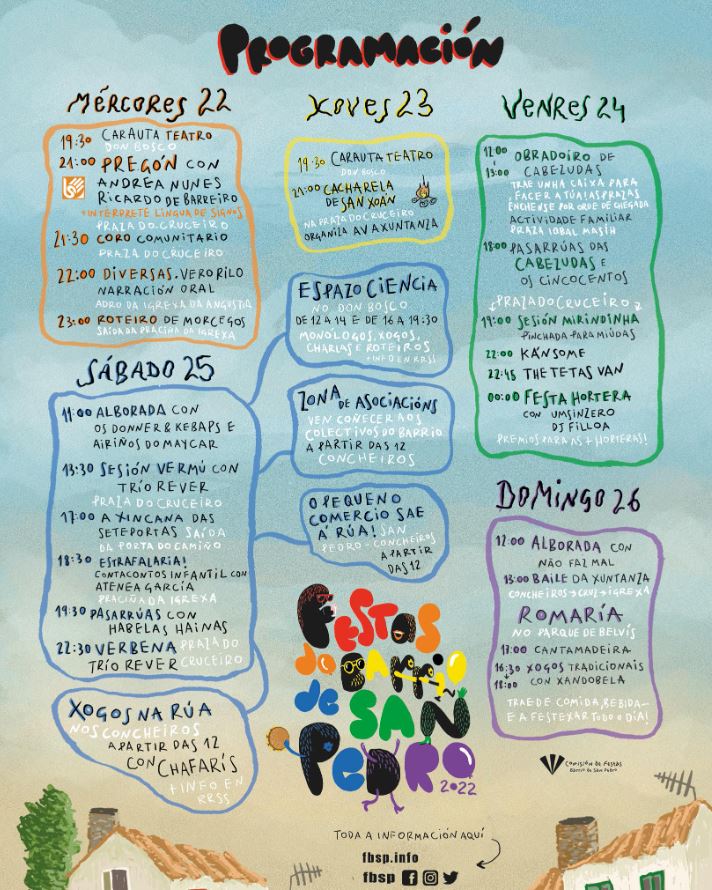 PROGRAMACIÓN
MÉRCORES 22
19:30 CARAUTA TEATRO
DON BOSCO
21:00 PREGÓN CON
ANDREA NUNES
RICARDO DE BARREIRO
+INTERPRETE LINGUA DE SIGNOS
PRAZA DO CRUCEIRO
21:30 CORO COMUNITARIO
PRAZA DO CRUCEIRO
22:00 DIVERSAS. VERO RILO
NARRACIÓN ORAL
ADRO DA IGREXA DA ANGUSTIA
23:00 ROTEIRO DE MORCEGOS
SAÍDA DA PRACIÑA DA IGREXA
XOVES 23
19:30 CARAUTA TEATRO
DON BOSCO
21:00 CACHARELA
DE SAN XOÁN
NA PRAZA DO CRUCEIRO
ORGANIZA AV A XUNTANZA
VENRES 24
12:00
13:00 OBRADOIRO DE
CABEZUDAS
TRAE UNHA CAIXA PARA
FACER A TÚA! AS PRAZAS
ENCHENSE POR ORDE DE CHEGADA
ACTIVIDADE FAMILIAR
PRAZA IQBAL MASIH
18:00 PASARRÚAS DAS
CABEZUDAS E
OS CINCOCENTOS
PRAZA DO CRUCEIRO
19:00 SESIÓN MIRINDINHA
PINCHADA PARA MIÚDAS
22:00 KÁNSOME
22:45 THE TETAS VAN
00:00 FESTA HORTERA
CON UMSINZERO
DJ FILLOA
PREMIOS PARA AS + HORTERAS!
SÁBADO 25
11:00 ALBORADA CON
OS DONNER & KEBAPS E
AIRIÑOS DO MAYCAR
13:30 SESIÓN VERMÚ CON
TRÍO REVER
PRAZA DO CRUCEIRO
17:00 A XINCANA DAS
SETEPORTAS SAÍDA
DA PORTA DO CAMIÑO
18:30 ESTRAFALARIA!
CONTACONTOS INFANTIL CON
ATENEA GARCÍA
PRACIÑA DA IGREXA
19:30 PASARRÚAS CON
HABELAS HAINAS
22:30 VERBENA PRAZA DO
TRÍO REVER CRUCEIRO
ESPAZO CIENCIA
NO DON BOSCO
DE 12 A 14 E DE 16 A 19:30
MONÓLOGOS, XOGOS,
CHARLAS E ROTEIROS
+INFO EN RRSS
ZONA DE ASOCIACIÓNS
VEN COÑECER AOS
COLECTIVOS DO BARRIO
A PARTIR DAS 12
CONCHEIROS
O PEQUENO
COMERCIO SAE
Á RÚA! SAN
PEDRO - CONCHEIROS
A PARTIR
DAS 12
XOGOS NA RÚA
NOS CONCHEIROS
A PARTIR DAS 12
CON CHAFARÍS
+INFO EN
RRSS
DOMINGO 26
12:00 ALBORADA CON
NÃO FAZ MAL
13:00 BAILE DA XUNTANZA
CONCHEIROS → CRUZ → IGREXA
ROMARÍA
NO PARQUE DE BELVÍS
17:00 CANTAMADEIRA
16:30
18:00 XOGOS TRADICIONAIS
CON XANDOBELA
TRAE DE COMIDA, BEBIDA
E A FESTEXAR TODO O DÍA!
FESTAS
do BARRIO
de SAN
PEDRO
2022
COMISIÓN DE FESTAS
BARRIO DE SAN PEDRO
TODA A INFORMACIÓN AQUÍ
fbsp.info
fbsp